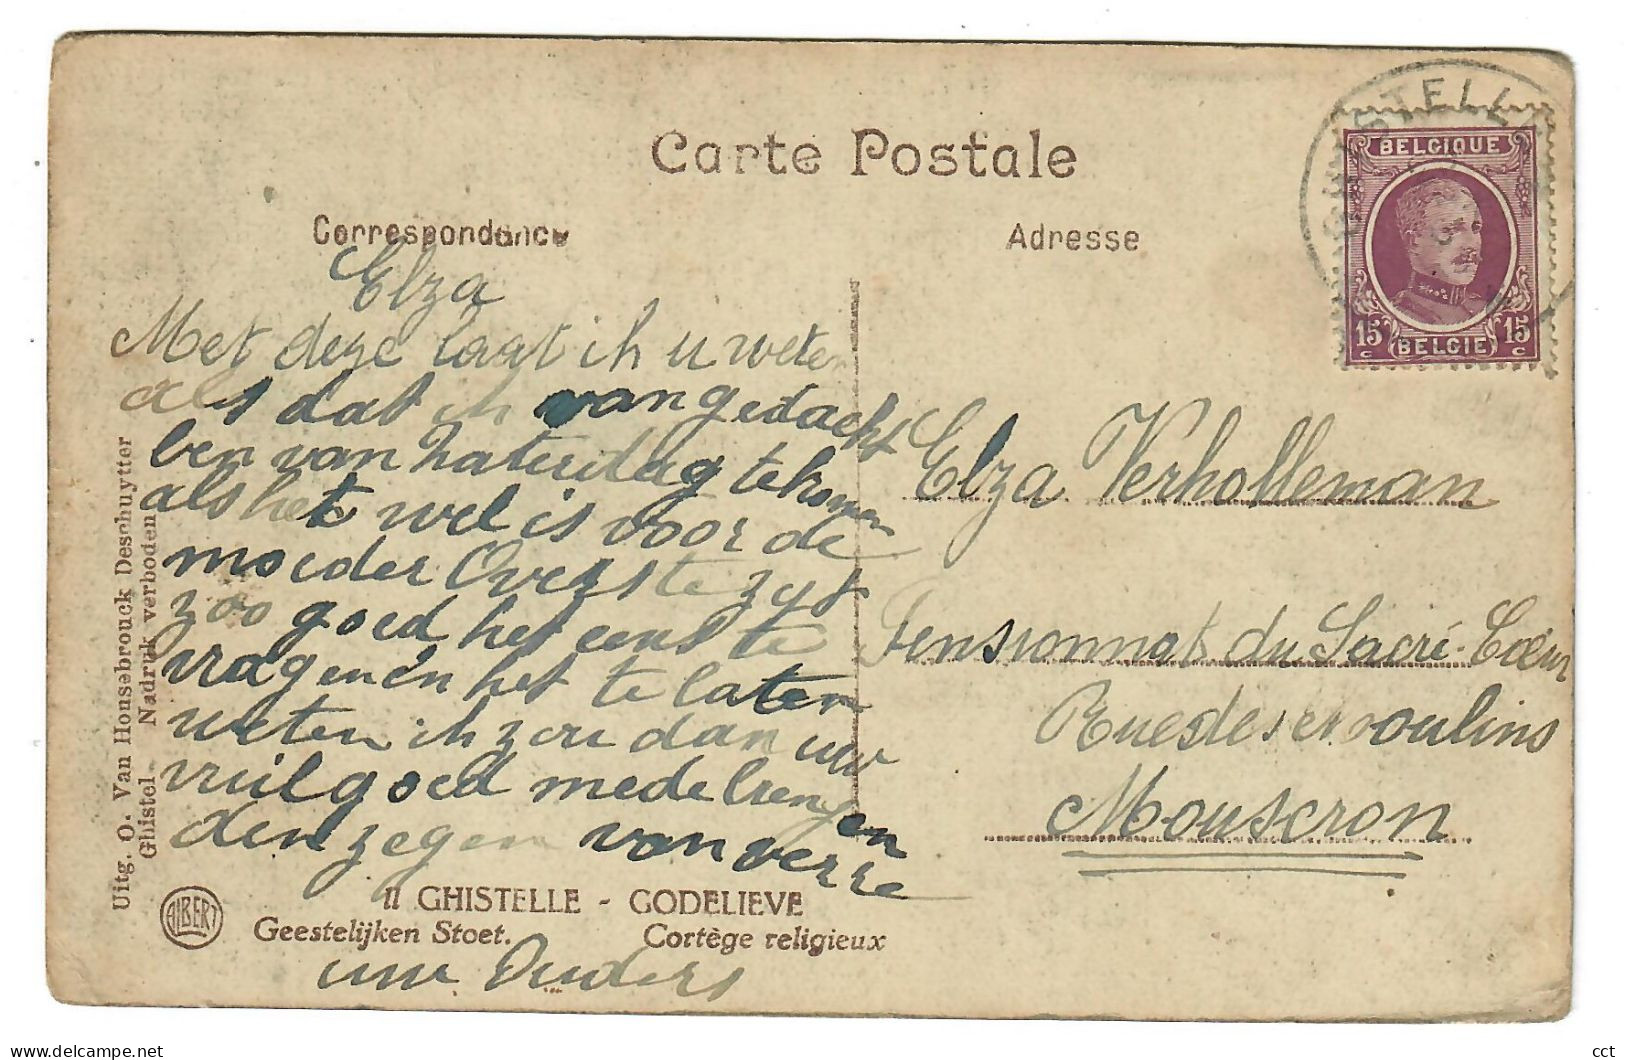 Carte Postale
Correspondance
Adresse
GHISTELLE
BELGIQUE
15 c 15 c
BELGIE
Elza
Met deze laat ik u weten
als dat ik van gedacht
ben van Zaterdag te komen
als het wel is voor de
moeder Overste zijt
zoo goed het eens te
vragen en het te laten
weten ik zou dan uw
vuil goed mede brengen
den zegen van verre
uw Ouders
Elza Verholleman
Pensionnat du Sacré-Coeur
Rue des moulins
Mouscron
Uitg. O. Van Housebrouck Deschuytter
Ghistel - Nadruk verboden
ALBERT
11 GHISTELLE - GODELIEVE
Geestelijken Stoet. Cortège religieux
delcampe.net
cct